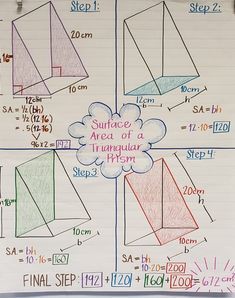 Step 1:
20cm
16cm
12cm
10cm
S.A. = ½ (bh)
= ½ (12·16)
= .5 (12·16)
96 x 2 = 192
Step 2:
12cm
b
10cm
h
S.A. = bh
= 12·10 = 120
Surface
Area of a
Triangular
Prism
Step 3
16cm
h
10cm
b
S.A. = bh
= 10·16 = 160
Step 4:
20cm
h
10cm
b
S.A. = bh
= 10·20 = 200
FINAL STEP: 192 + 120 + 160 + 200 = 672 cm²